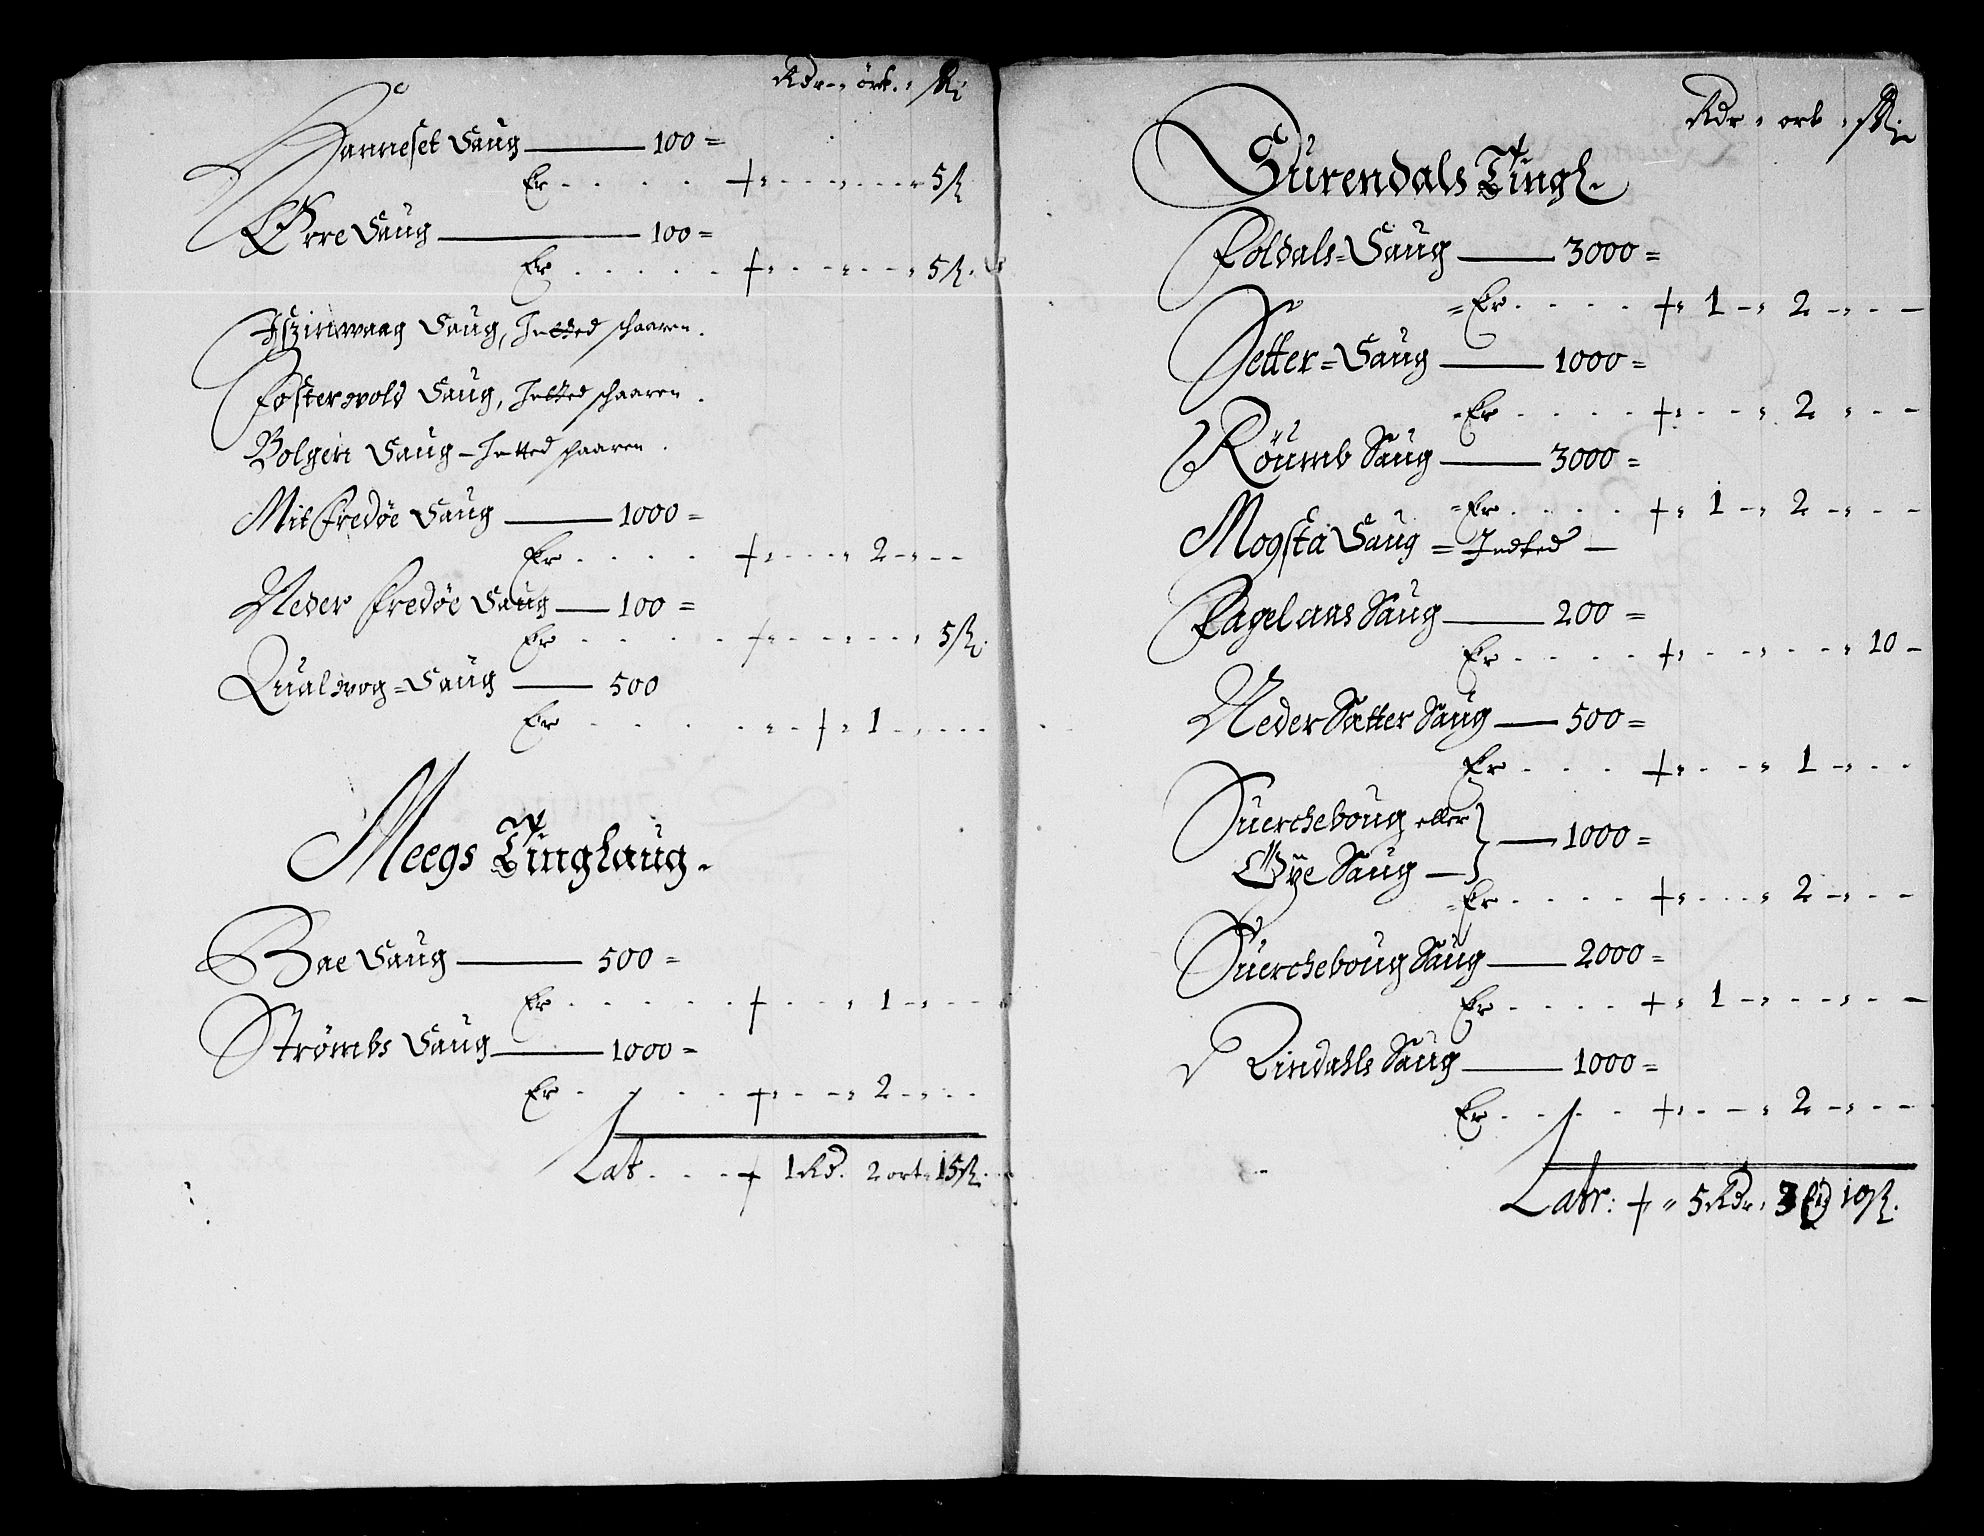 Rdr ort ẞ
Hanneset Saug 100
Er 5 ß
Ørre Saug 100
Er 5 ß
Saug, Intted schaaren.
Fosterwold Saug, Intted schaaren.
Bolgen Saug Intted schaaren.
Mit Fredøe Saug 1000
Er 2
Neder Fredøe Saug 100
Er 5 ß
Qualwog Saug 500
Er 1
Meegs Tinglaug.
Bae Saug 500
Er 1
Strømbs Saug 1000
Er 2
Lat 1 Rd. 2 ort 15 ß.
Rdr ort ß
Surendals Tingl.
Foldals Saug 3000
Er 1 2
Setter Saug 1000
Er 2
Röumb Saug 3000
Er 1 2
Mogsta Saug Indted
Fagelaas Saug 200
Er 10
Neder Sætter Saug 500
Er 1
Suercheboug eller
Øye Saug 1000
Er 2
Suercheboug Saug 2000
Er 1
Rindahls Saug 1000
Er 2
Latr: 5 Rdr 3 10 ß.